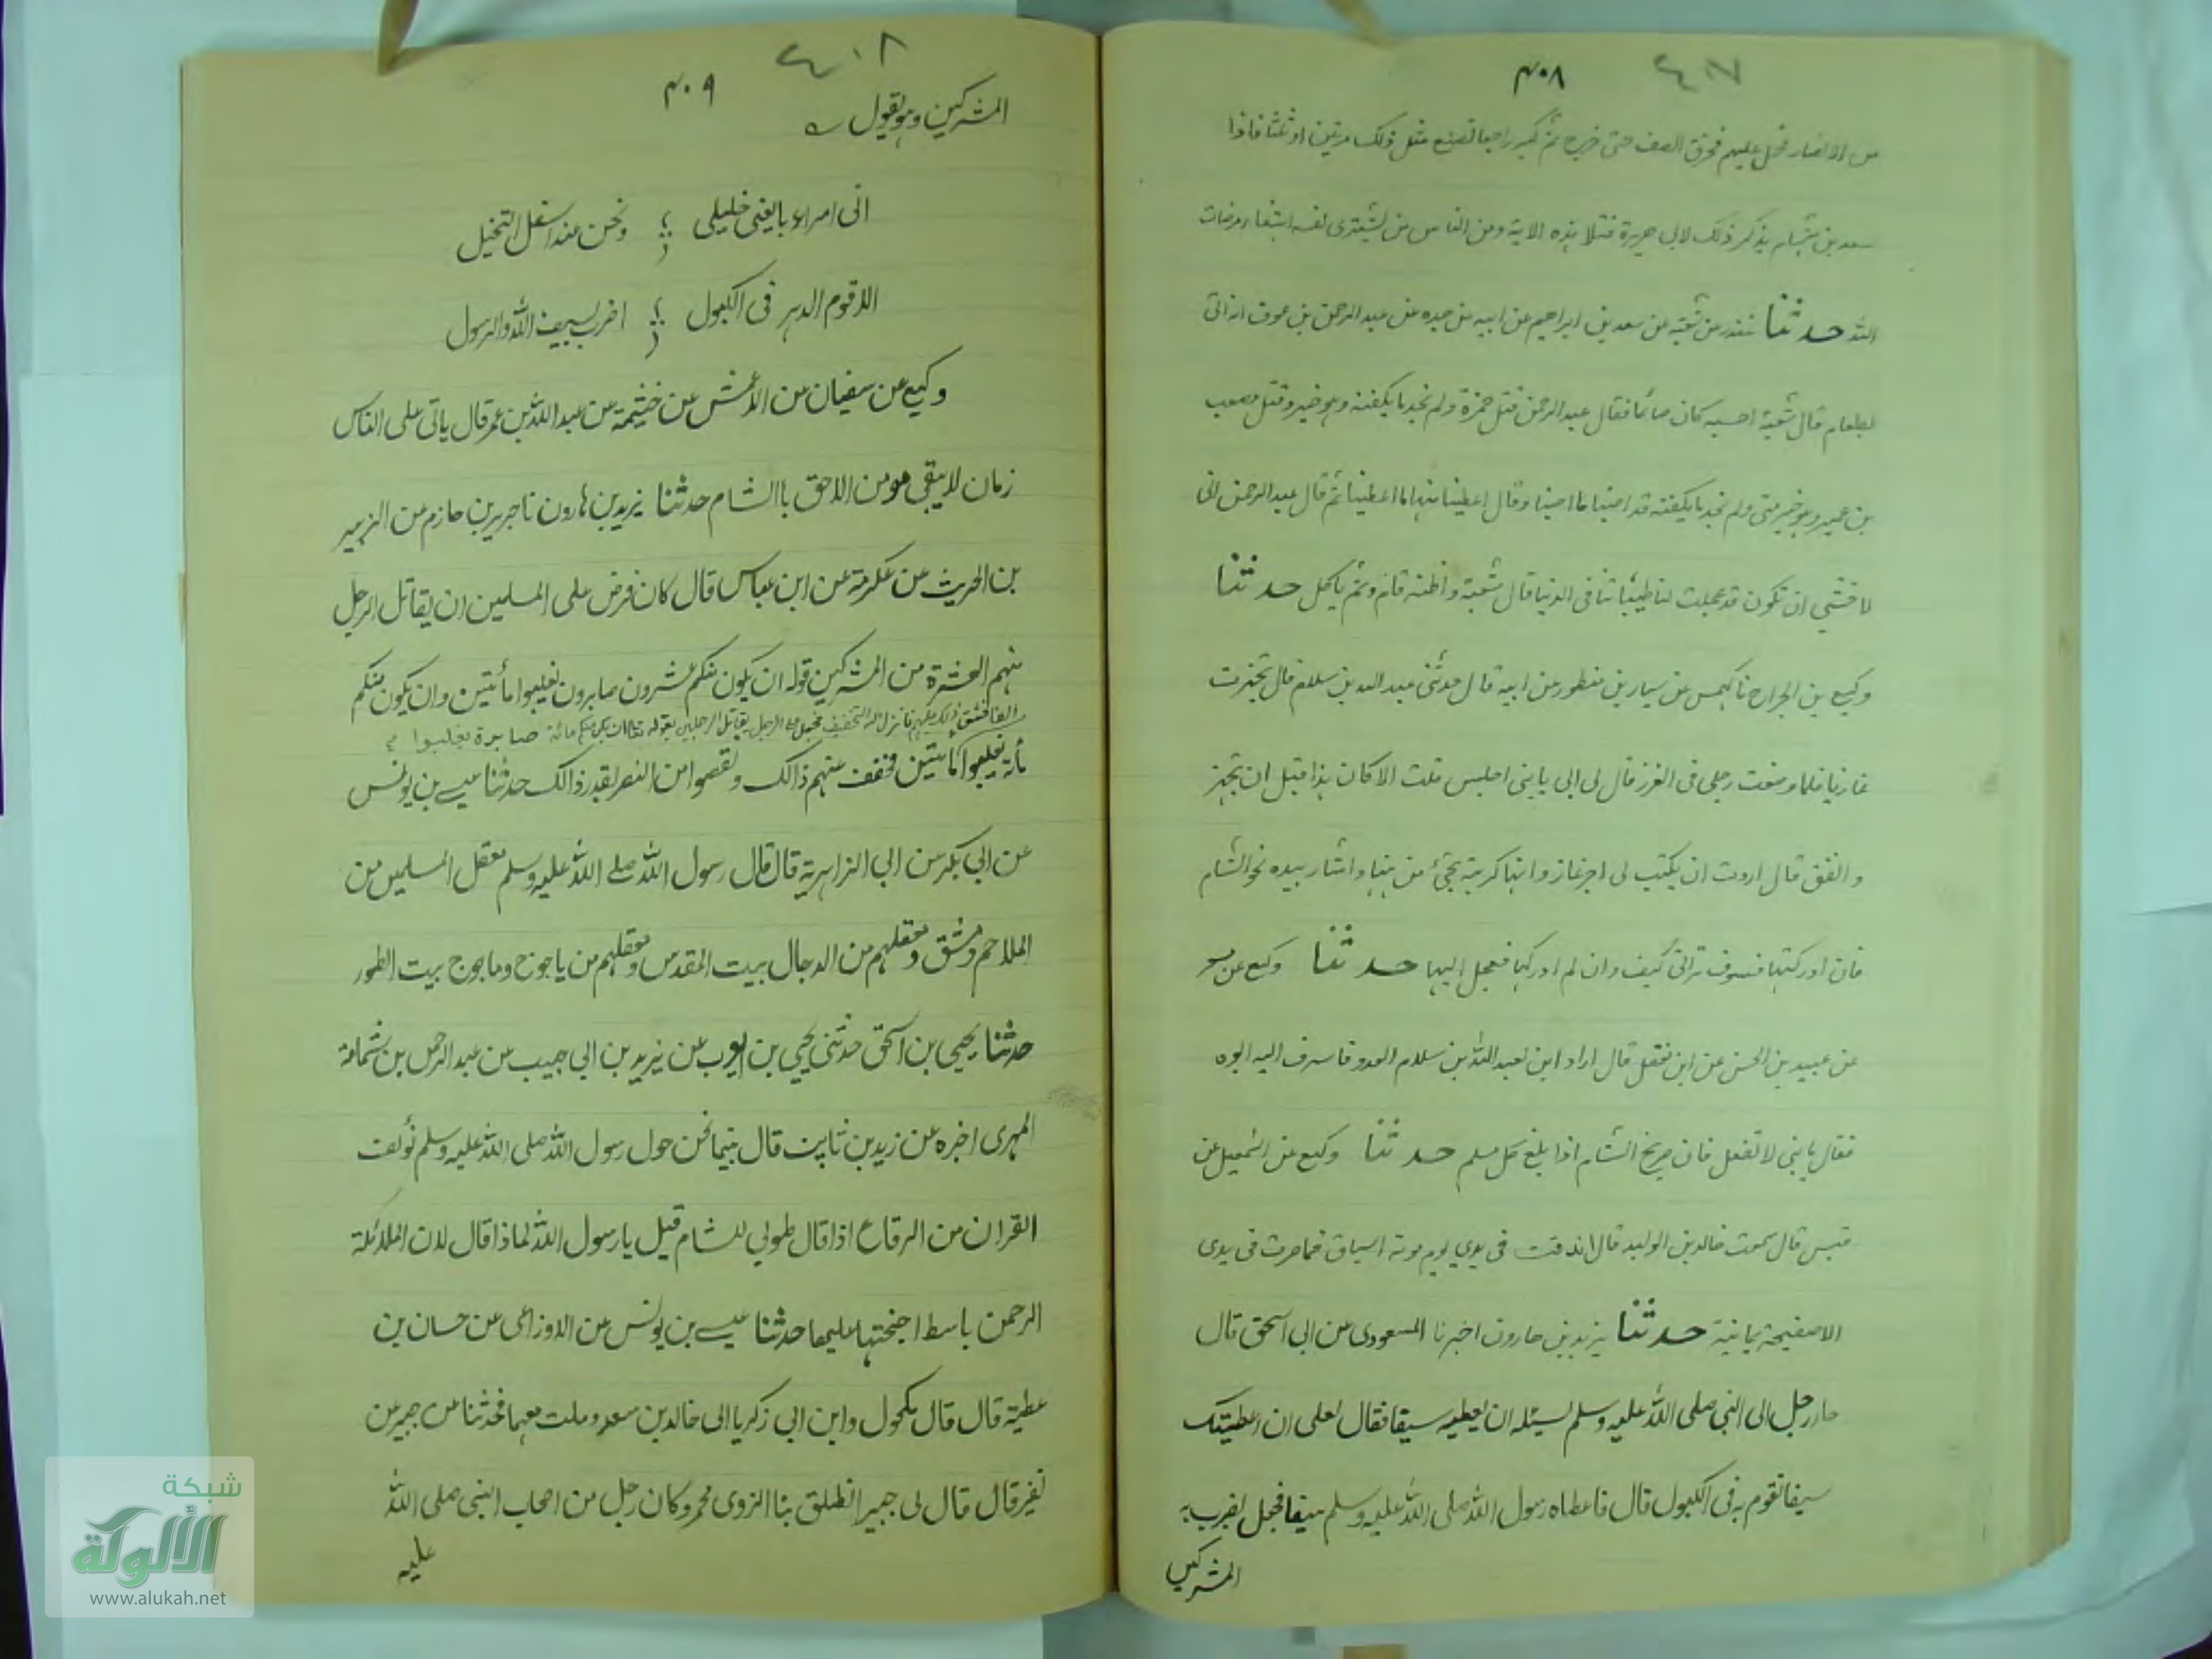 ٤٠٧
٤٠٨
من الانصار فحمل عليهم فخرق الصف حتى خرج ثم كبر راجعا فصنع مثل ذلك مرتين او ثلثا فاذا
سعد بن هشام يذكر ذلك لابى هريرة فتلا هذه الاية ومن الناس من يشترى نفسه ابتغاء مرضات
الله حدثنا غندر عن شعبة عن سعد بن ابراهيم عن ابيه عن جده عن عبد الرحمن بن عوف انه اتى
بطعام قال شعبة احسبه كان صائما فقال عبد الرحمن قتل حمزة ولم نجد ما يكفنه وهو خير وقتل مصعب
بن عمير وهو خير منى ولم نجد ما يكفنه قد اصبنا ما اصبنا وقال اعطينا منها ما اعطينا ثم قال عبد الرحمن انى
لاخشي ان تكون قد عجلت لنا طيباتنا فى الدنيا قال شعبة واظنه قام ولم ياكل حدثنا
وكيع بن الجراح نا كهمس عن سيار بن منظور عن ابيه قال حدثنى عبد الله بن سلام قال تجهزت
غازيا فلما وضعت رجلى فى الغرز قال لى ابى يا بنى اجلس قلت الا كان هذا قبل ان تجهز
وانفق قال اردت ان يكتب لى اجر غاز وانها كريهة تجئ من هنا واشار بيده نحو الشام
فان ادركتها فسوف ترانى كيف وان لم ادركها فعجل اليها حدثنا وكيع عن مسعر
عن عبيد بن الحسن عن ابن معقل قال اراد ابن لعبد الله بن سلام العدو فاسرف اليه ابوه
فقال يا بنى لا تفعل فان صريخ الشام اذا بلغ كل مسلم حدثنا وكيع عن اسمعيل عن
قيس قال سمعت خالد بن الوليد قال اندقت فى يدى يوم موتة اسياق فما صرت فى يدى
الا صفيحة يمانية حدثنا يزيد بن هارون اخبرنا المسعودى عن ابى اسحق قال
جاء رجل الى النبى صلى الله عليه وسلم يسئله ان يعطيه سيفا فقال لعلى ان اعطيتك
سيفا تقوم به فى الكبول قال فاعطاه رسول الله صلى الله عليه وسلم سيفا فجعل يضرب به
المشركين
٤٠٨
٤٠٩
المشركين وهو يقول
انى امراء بايعنى خليلى ونحن عند اسفل النخيل
الا قوم الدهر فى الكبول اضرب بسيف الله والرسول
وكيع عن سفيان عن الاعمش عن خيثمة عن عبد الله بن عمر قال ياتى على الناس
زمان لا يبقى مومن الا لحق باالشام حدثنا يزيد بن هارون نا جرير بن حازم عن الزبير
بن الحريث عن عكرمة عن ابن عباس قال كان فرض على المسلمين ان يقاتل الرجل
منهم العشرة من المشركين قوله ان يكون منكم عشرون صابرون يغلبوا مأتين وان يكون منكم
الفا فشق ذلك عليهم فانزل الله التخفيف فجعل على الرجل يقاتل الرجلين بقوله تعا ان يكن منكم مائة صابرة يغلبوا
مأة يغلبوا مائتين فخفف عنهم ذالك ونقصوا من النصر بقدر ذالك حدثنا عيسے بن يونس
عن ابى بكر عن ابى الزاهرية قال قال رسول الله صلے الله عليه وسلم معقل المسلمين من
الملاحم دمشق ومعقلهم من الدجال بيت المقدس ومعقلهم من ياجوج وماجوج بيت الطور
حدثنا يحيى بن اسحق حدثنى يحيي بن ايوب عن يزيد بن ابى حبيب عن عبد الرحمن بن شماسة
المهرى اخبره عن زيد بن ثابت قال بينما نحن حول رسول الله صلى الله عليه وسلم نؤلف
القران من الرقاع اذا قال طوبى للشام قيل يا رسول الله لماذا قال لان الملائكة
الرحمن باسط اجنحتها عليها حدثنا عيسے بن يونس عن الاوزاعى عن حسان بن
عطية قال قال مكحول وابن ابى زكريا الى خالد بن معد وملت معهما فحدثنا عن جبير عن
نفير قال قال لى جبير انطلق بنا الى ذوى مخمر وكان رجل من اصحاب النبى صلى الله
عليه
شبكة
الألوكة
www.alukah.net